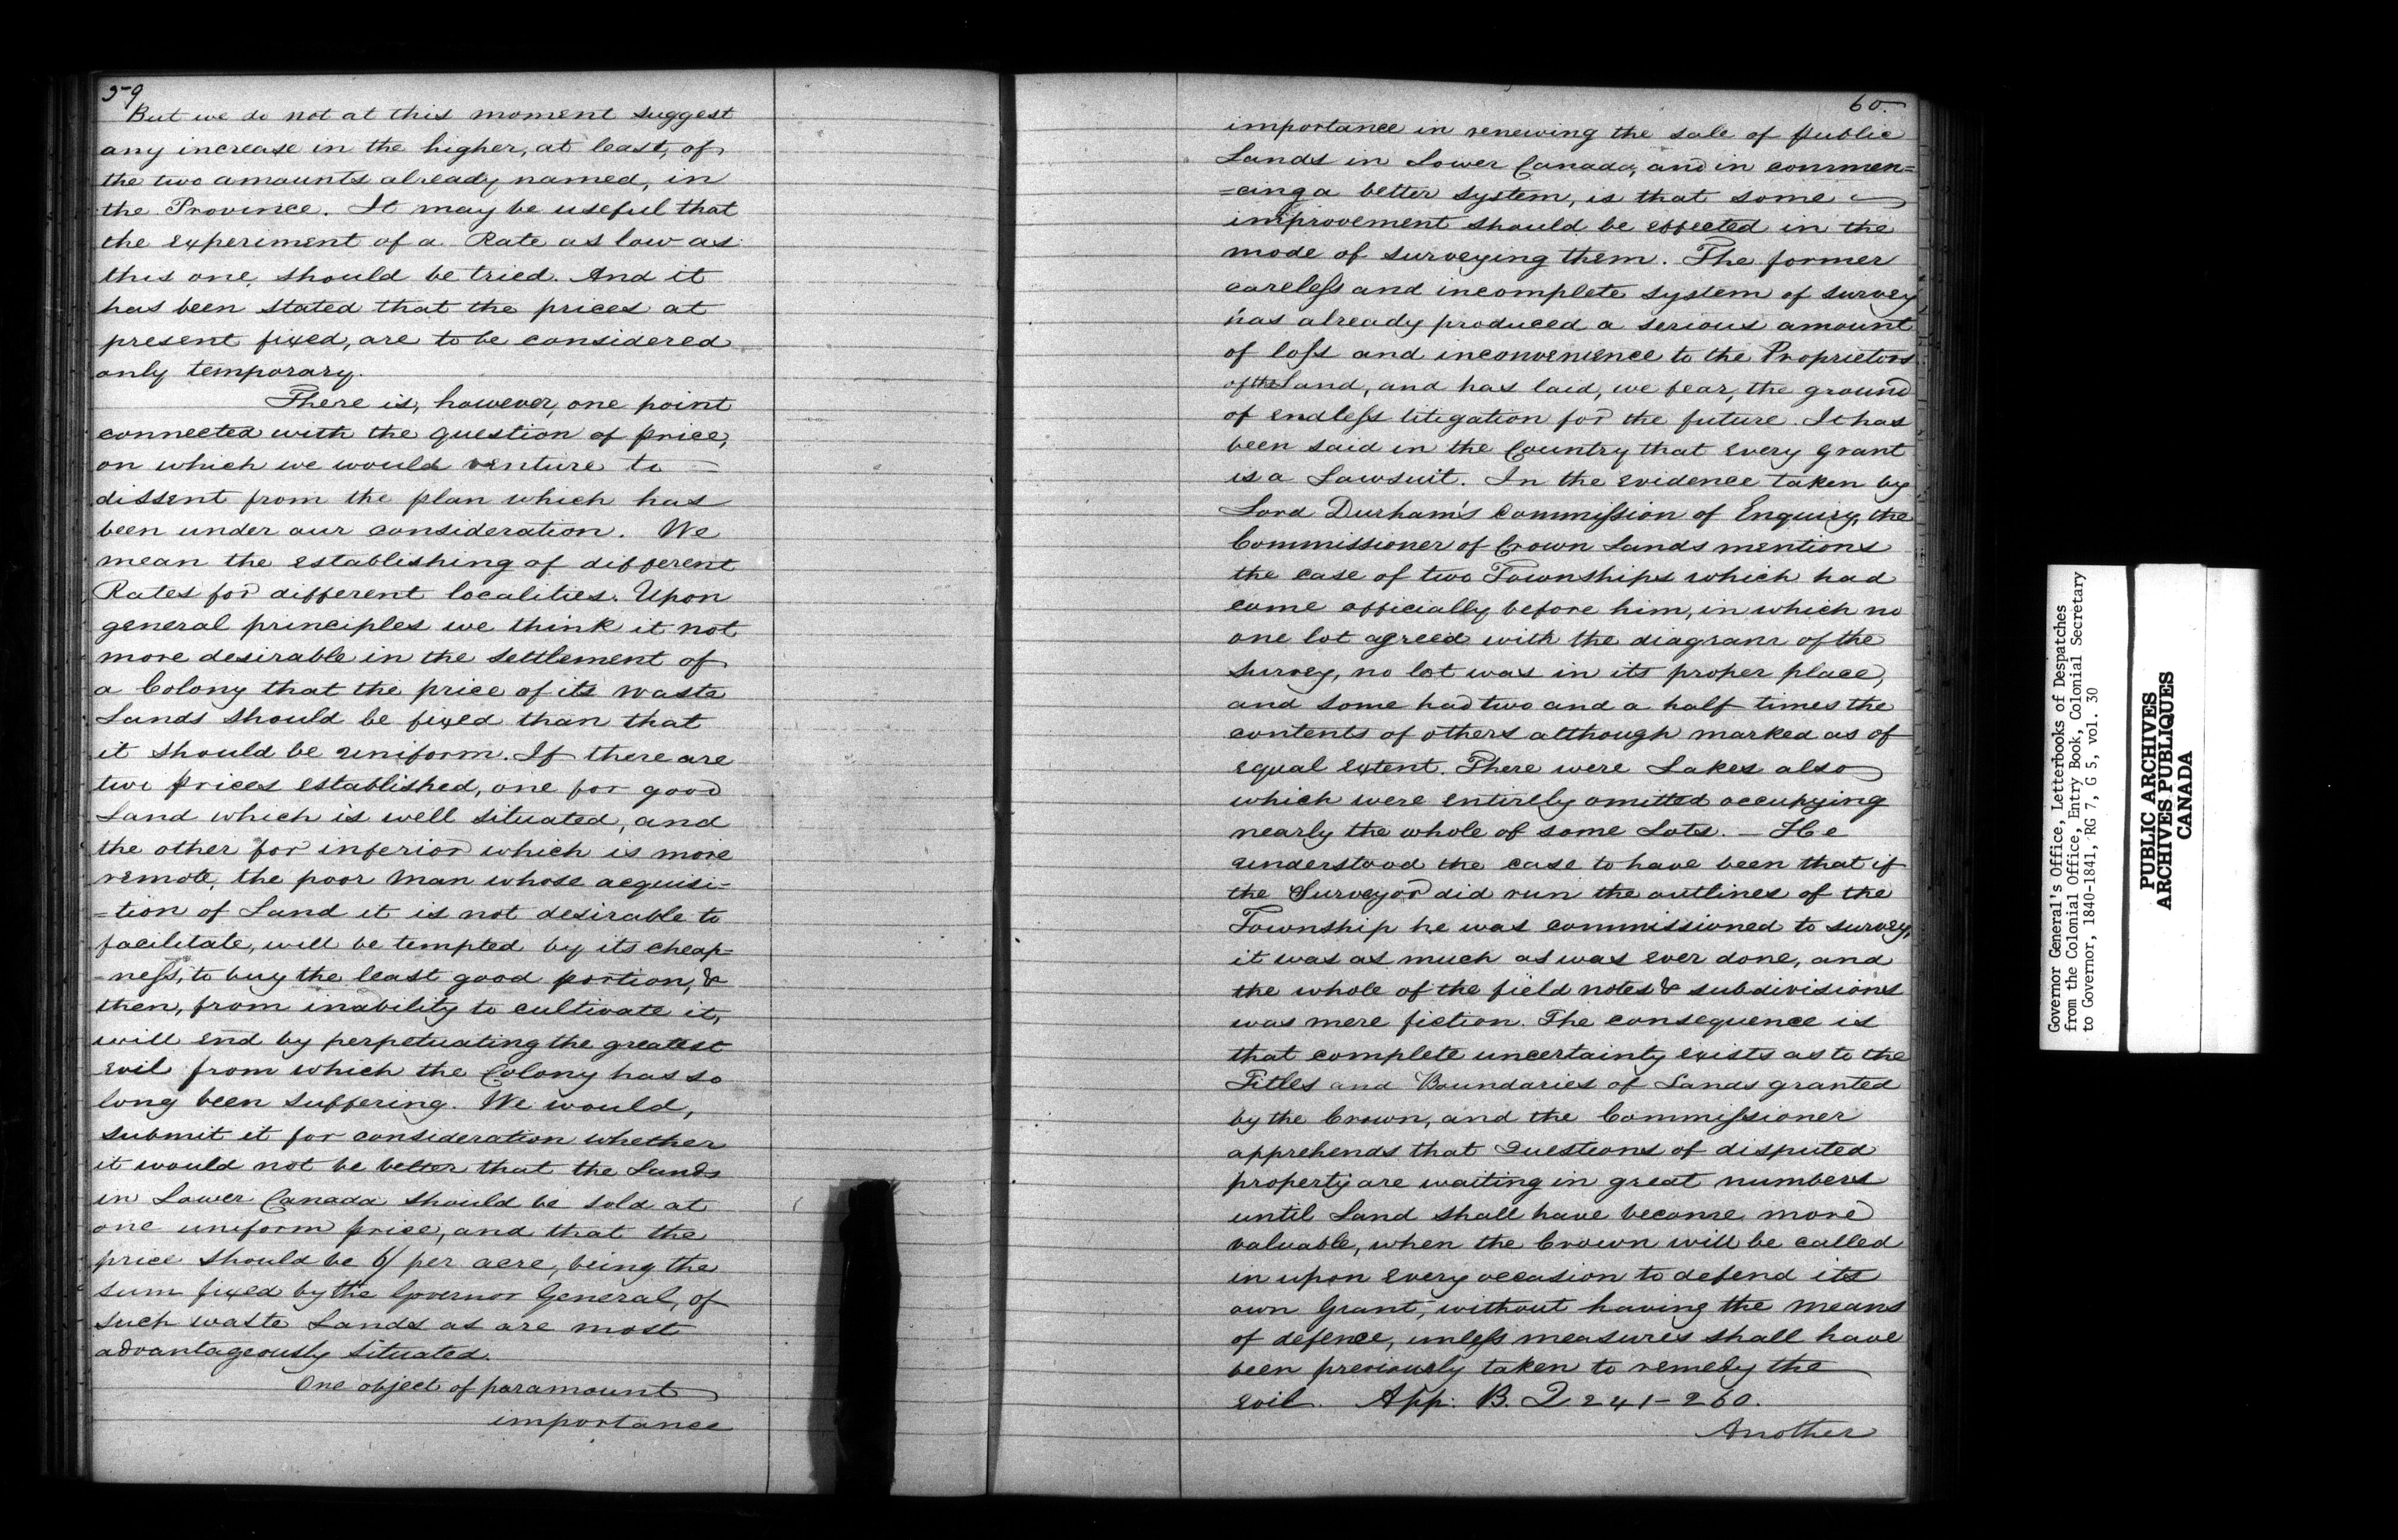 59
But we do not at this moment suggest
any increase in the higher, at least, of
the two amounts already named, in
the Province. It may be useful that
the experiment of a Rate as low as
this one, should be tried. And it
has been stated that the prices at
present fixed, are to be considered
only temporary.
There is, however, one point
connected with the question of price,
on which we would venture to
dissent from the plan which has
been under our consideration. We
mean the establishing of different
Rates for different localities. Upon
general principles we think it not
more desirable in the settlement of
a Colony that the price of its waste
Lands should be fixed than that
it should be uniform. If there are
two prices established, one for good
Land which is well situated, and
the other for inferior which is more
remote, the poor man whose acquisi-
=tion of Land it is not desirable to
facilitate, will be tempted by its cheap-
-ness, to buy the least good portion, &
then, from inability to cultivate it,
will end by perpetuating the greatest
evil from which the Colony has so
long been suffering. We would,
submit it for consideration whether
it would not be better that the Lands
in Lower Canada should be sold at
one uniform price, and that the
price should be 6/ per acre, being the
sum fixed by the Governor General, of
such waste Lands as are most
advantageously situated.
One object of paramount
importance
60.
importance in renewing the sale of public
Lands in Lower Canada, and in commen=
=cing a better system, is that some
improvement should be effected in the
mode of surveying them. The former
careless and incomplete system of survey
has already produced a serious amount
of loss and inconvenience to the Proprietors
of the Land, and has laid, we fear, the ground
of endless litigation for the future. It has
been said in the Country that every grant
is a Lawsuit. In the evidence taken by
Lord Durham's Commission of Enquiry, the
Commissioner of Crown Lands mentions
the case of two Townships which had
come officially before him, in which no
one lot agreed with the diagram of the
survey, no lot was in its proper place,
and some had two and a half times the
contents of others although marked as of
equal extent. There were Lakes also
which were entirely omitted occupying
nearly the whole of some Lots. — He
understood the case to have been that if
the Surveyor did run the outlines of the
Township he was commissioned to survey,
it was as much as was ever done, and
the whole of the field notes & subdivisions
was mere fiction. The consequence is
that complete uncertainty exists as to the
Titles and Boundaries of Lands granted
by the Crown, and the Commissioner
apprehends that Questions of disputed
property are waiting in great numbers
until Land shall have become more
valuable, when the Crown will be called
in upon every occasion to defend its
own Grant, without having the means
of defence, unless measures shall have
been previously taken to remedy the
evil. App: B. Q 241-260.
Another
Governor General's Office, Letterbooks of Despatches
from the Colonial Office, Entry Book, Colonial Secretary
to Governor, 1840-1841, RG 7, G 5, vol. 30
PUBLIC ARCHIVES
ARCHIVES PUBLIQUES
CANADA